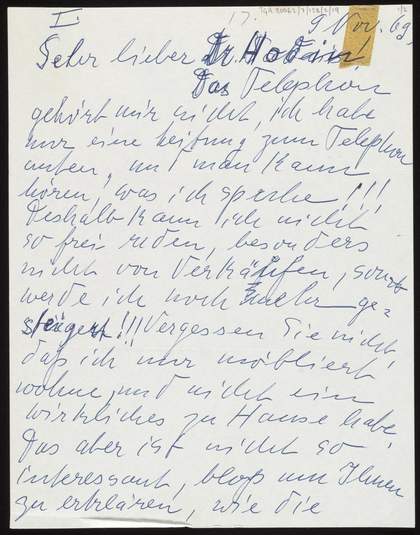 I
17.
TGA 20062/
9 Nov. 69
Sehr lieber Dr. Hodin!
Das Telephon
gehört mir nicht, ich habe
nur eine Leitung zum Telephon
unten, und man kann
hören, was ich spreche!!!
Deshalb kann ich nicht
so frei reden, besonders
nicht von Verkäufen, sonst
werde ich noch mehr ge=
steigert!!! Vergessen Sie nicht,
daß ich nur möbliert
wohne und nicht ein
wirkliches zu Hause habe,
Das aber ist nicht so
interessant, bloß um Ihnen
zu erklären, wie die